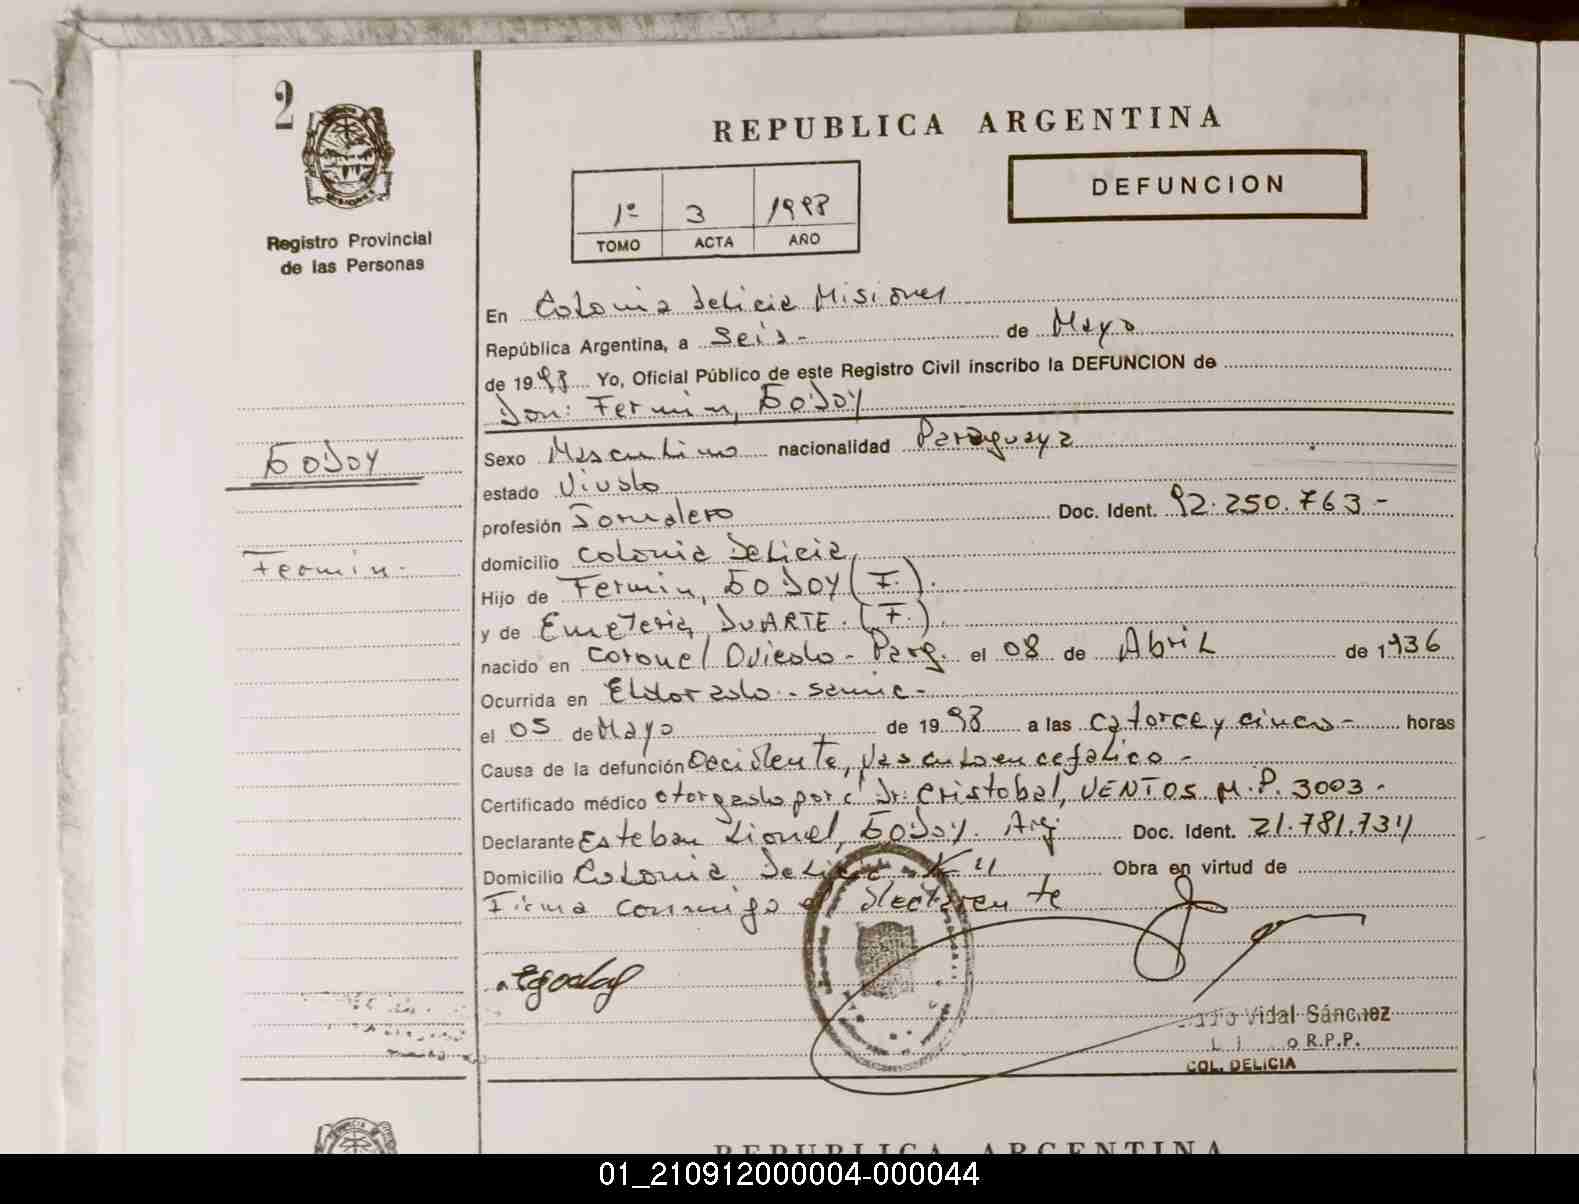 2
REPUBLICA ARGENTINA
DEFUNCION
1º 3 1998
TOMO ACTA AÑO
Registro Provincial
de las Personas
En Colonia Delicia Misiones
República Argentina, a Seis - de Mayo
de 1998 Yo, Oficial Público de este Registro Civil inscribo la DEFUNCION de
Don: Fermin, GODOY
GODOY
Fermin.
Sexo Masculino nacionalidad Paraguaya
estado Viudo
profesión Jornalero Doc. Ident. 92.250.763-
domicilio Colonia Delicia,
Hijo de Fermin, GODOY (F.).
y de Emeteria, DUARTE. (F.).
nacido en Coronel Oviedo - Parg. el 08 de Abril de 1936
Ocurrida en Eldorado - samic -
el 05 de Mayo de 1998 a las catorce y cinco - horas
Causa de la defunción Accidente, Vasculoencefalico -
Certificado médico otorgado por el Dr: Cristobal, VENTOS M.P. 3003-
Declarante Esteban Lionel, GODOY. Arg. Doc. Ident. 21.781.734
Domicilio Colonia Delicia Obra en virtud de
Firma conmigo el declarente
Vidal Sánchez
R.P.P.
COL. DELICIA
REPUBLICA ARGENTINA
01_210912000004-000044